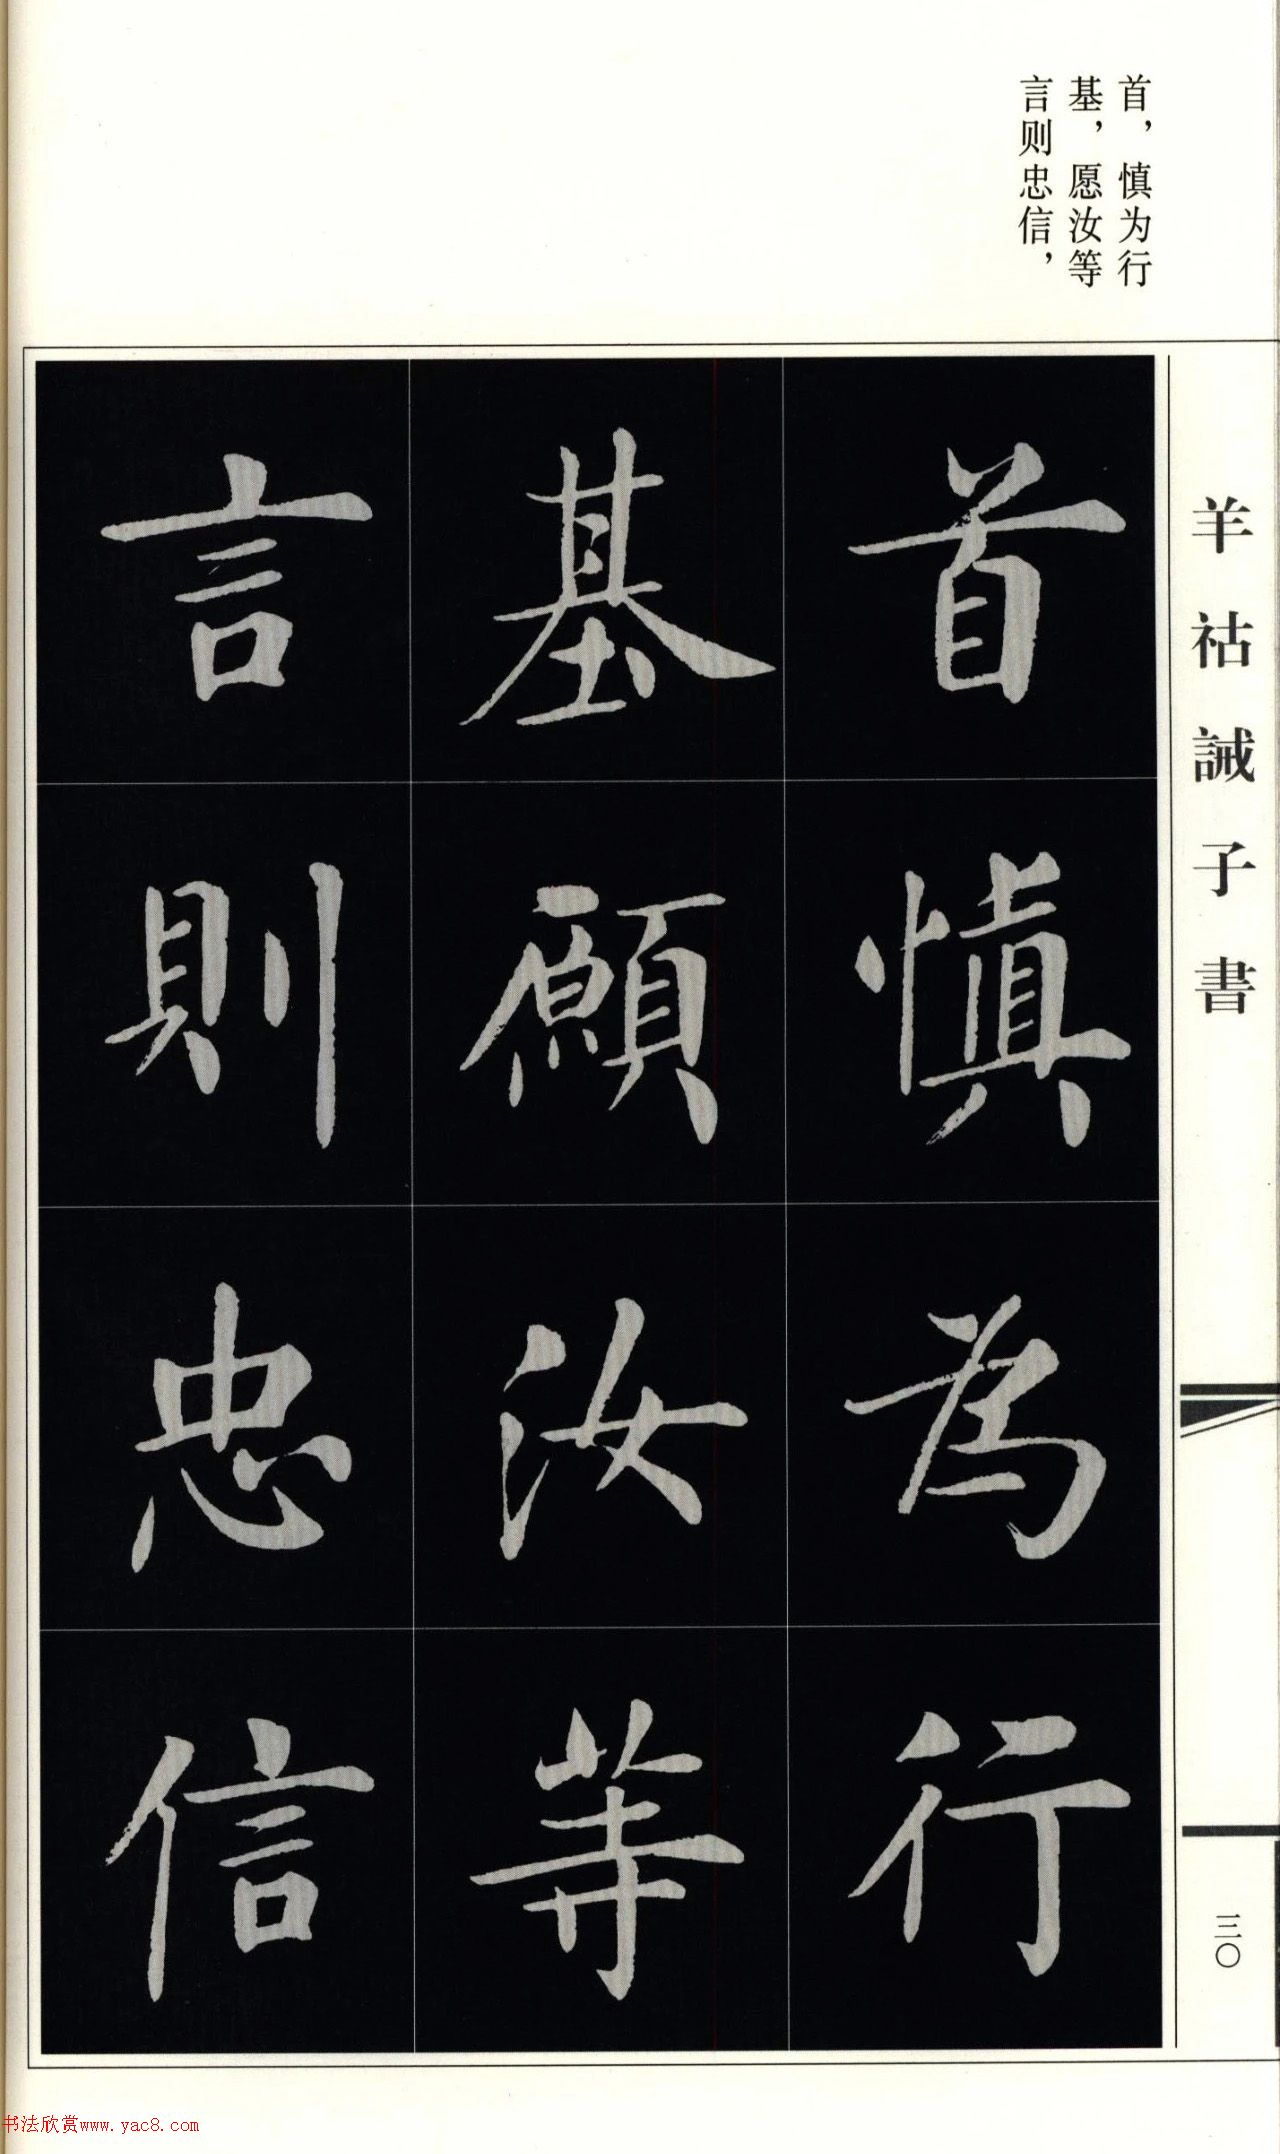 首，慎为行
基，愿汝等
言则忠信，
羊祜誡子書
三〇
首慎為行
基願汝等
言則忠信
书法欣赏www.yac8.com